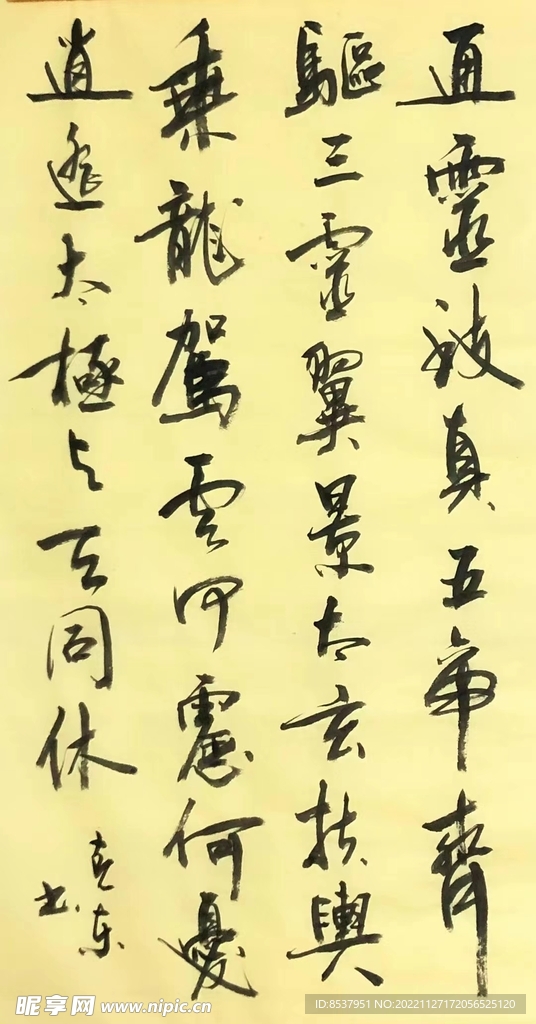 通靈被真五帝齊
驅三靈翼景太玄扶輿
乘龍駕雲何慮何憂
逍遙太極与天同休
东
书
昵享网 www.nipic.cn
ID:8537951 NO:20221127172056525120